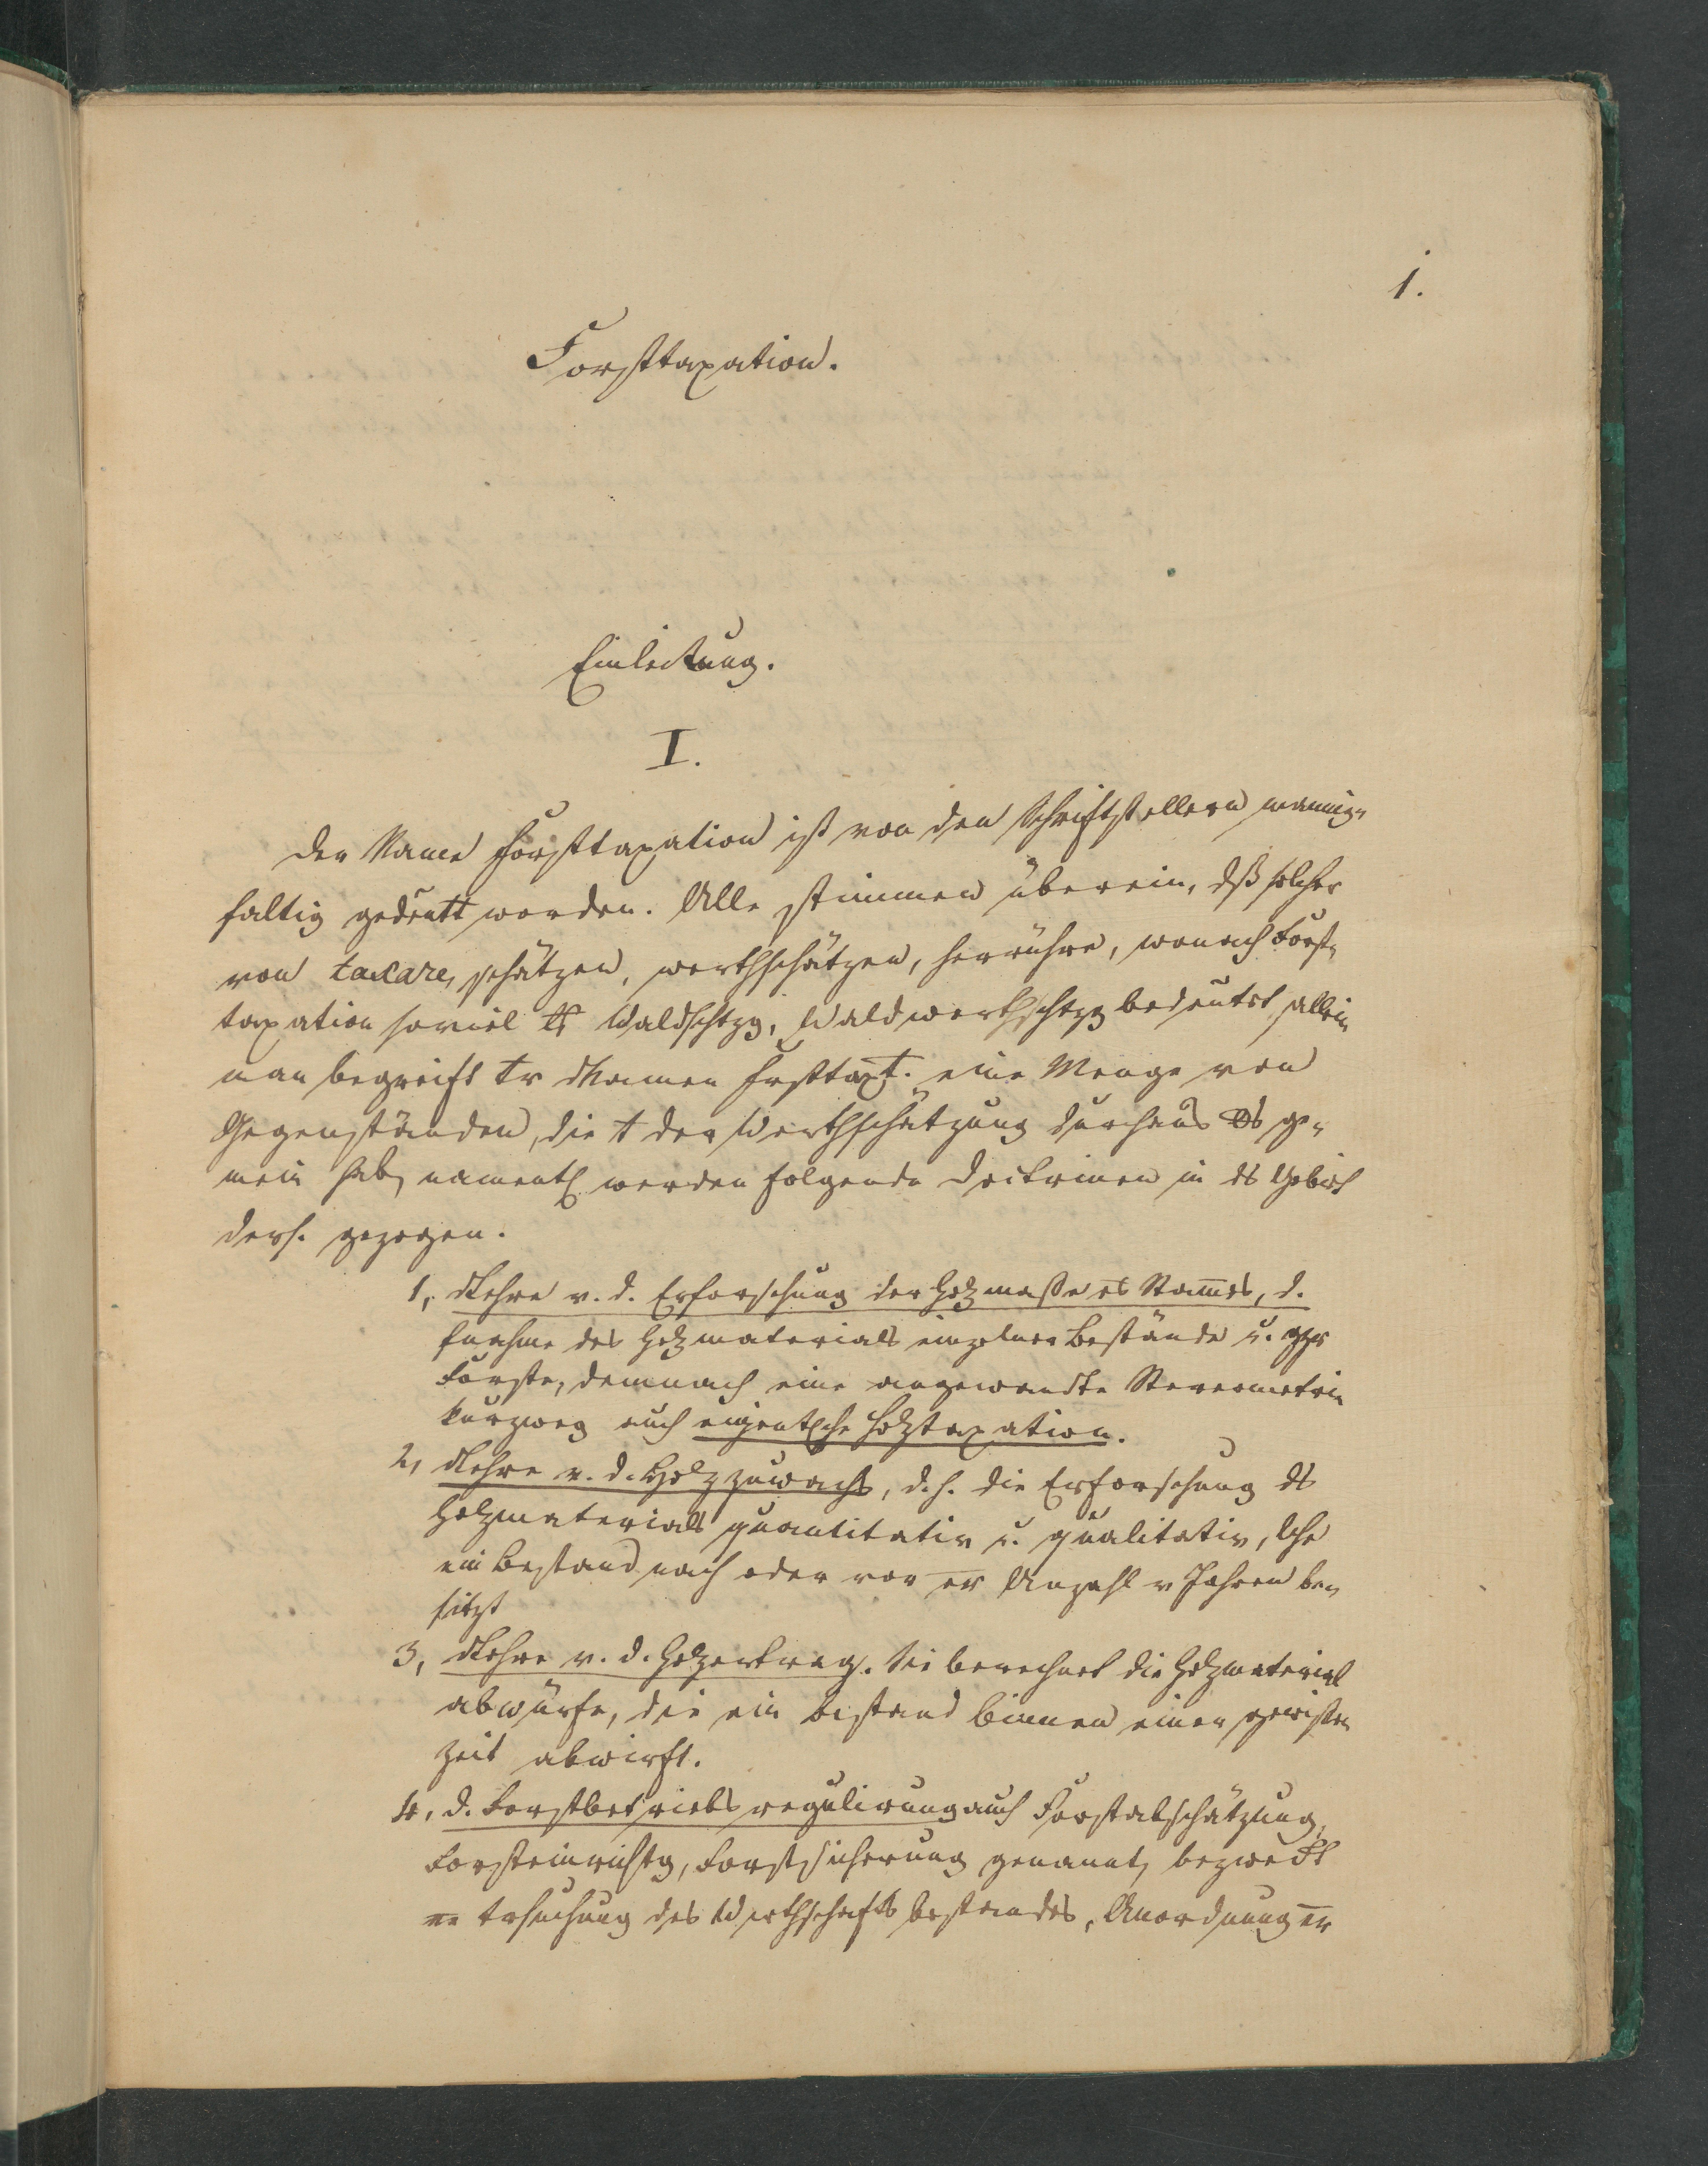 1.
Forsttaxation.
Einleitung.
I.
Der Name Forsttaxation ist von den Schriftstellern mannig-
faltig gedeutt worden. Alle stimmen überein, dß solcher
von taxare, schätzen, werthschätzen, herrühre, wonach Forst-
taxation soviel als Waldschtzg, Waldwerthschtzg bedeutet, allein
man begreift unter d Namen Forsttaxt. eine Menge von
Gegenständen, die mit der Werthschätzung durchaus nichts ge-
mein hab, namentl werden folgende Doctrinen in ds Gebiet
ders. gezogen.
1, d Lehre v. d. Erforschung der Holzmaße es Stames, d.
Aufnahme des Holzmaterials einzelner Bestände u. gzr
Forste, demnach eine angewandte Stereometrie
kurzweg auch eigentlche Holztaxation.
2, d Lehre v. d. Holzzuwachs, d. h. die Erforschung ds
Holzmaterials quantitativ u. qualitativ, lche
ein Bestand nach oder vor er Anzahl v Jahren be-
sitzt
3, d Lehre v. d. Holzertrag. Sie berechnet die Holzmaterial
abwürfe, die ein Bestand binnen einer gewissen
Zeit abwirft.
4, d. Forstbetriebsregulirung auch Forstabschätzung,
Forsteinrichtg, Forstsicherung genannt, bezweckt
ne Untersuchung des Wirthschaftsbestandes, Anordnung er